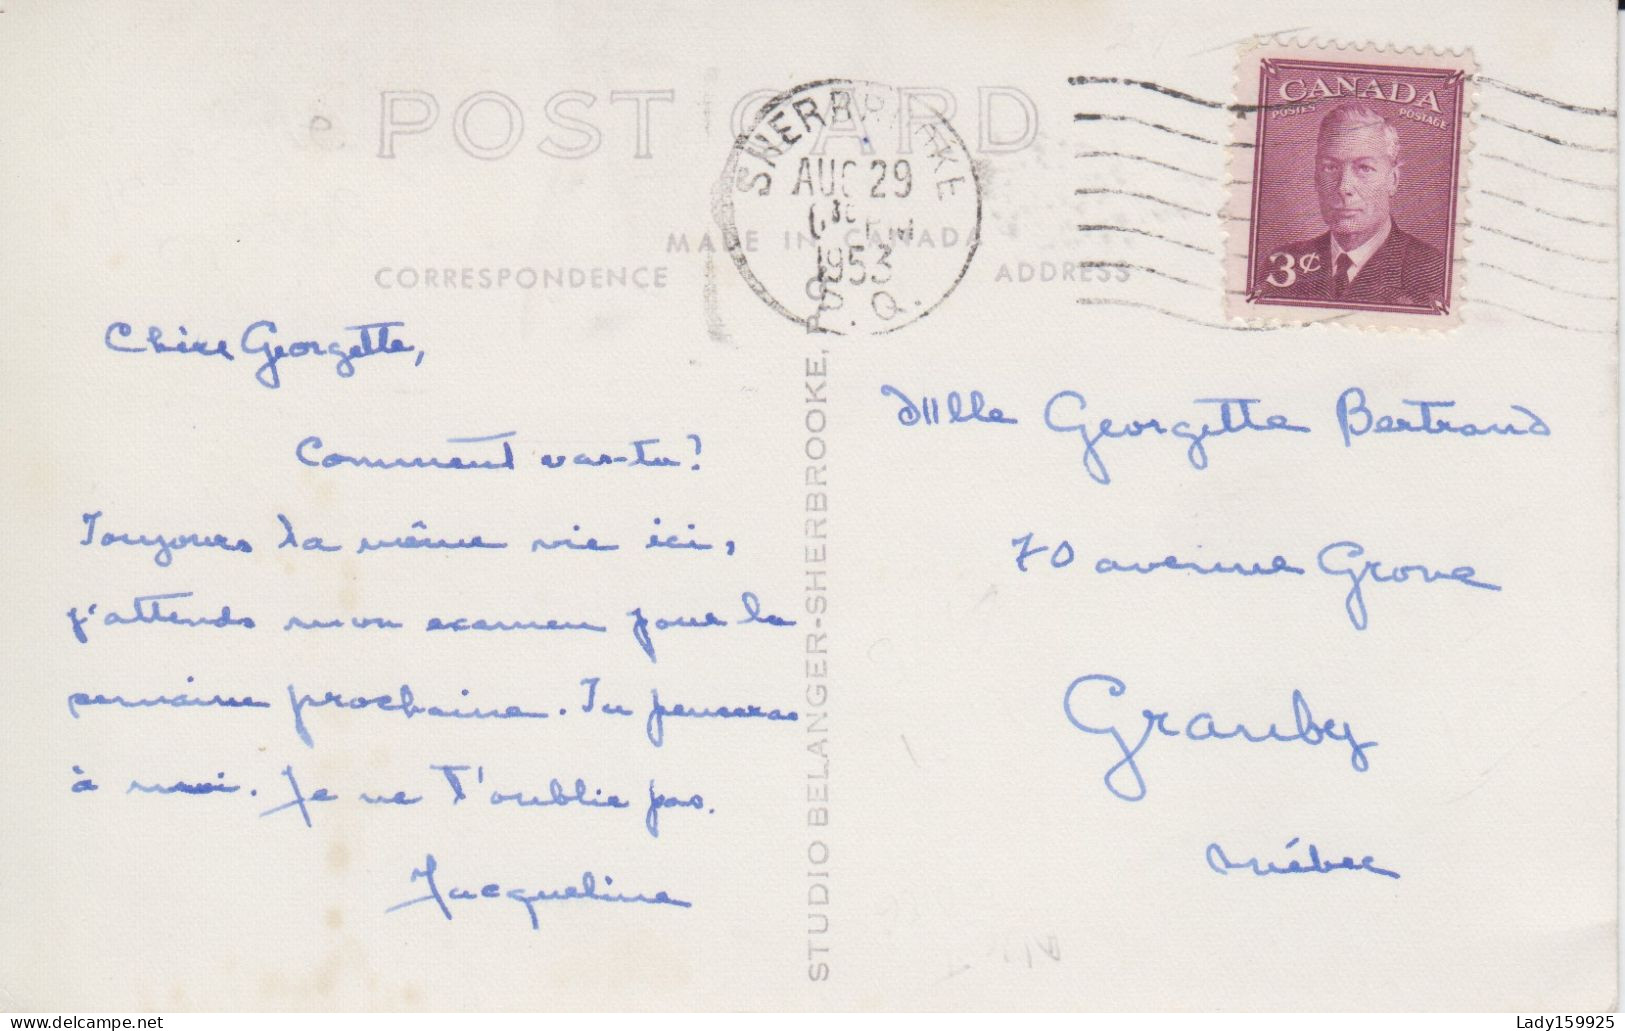 POST CARD
MADE IN CANADA
CORRESPONDENCE
ADDRESS
SHERBROOKE
AUG 29
PM
1953
P.Q.
CANADA
POSTES POSTAGE
3¢
Chère Georgette,
Comment vas-tu?
Toujours la même vie ici,
j'attends mon examen pour la
semaine prochaine. Tu penseras
à moi. Je ne t'oublie pas.
Jacqueline
STUDIO BELANGER-SHERBROOKE, P.Q.
Mlle Georgette Bertrand
70 avenue Grove
Granby
Québec
delcampe.net
Lady159925